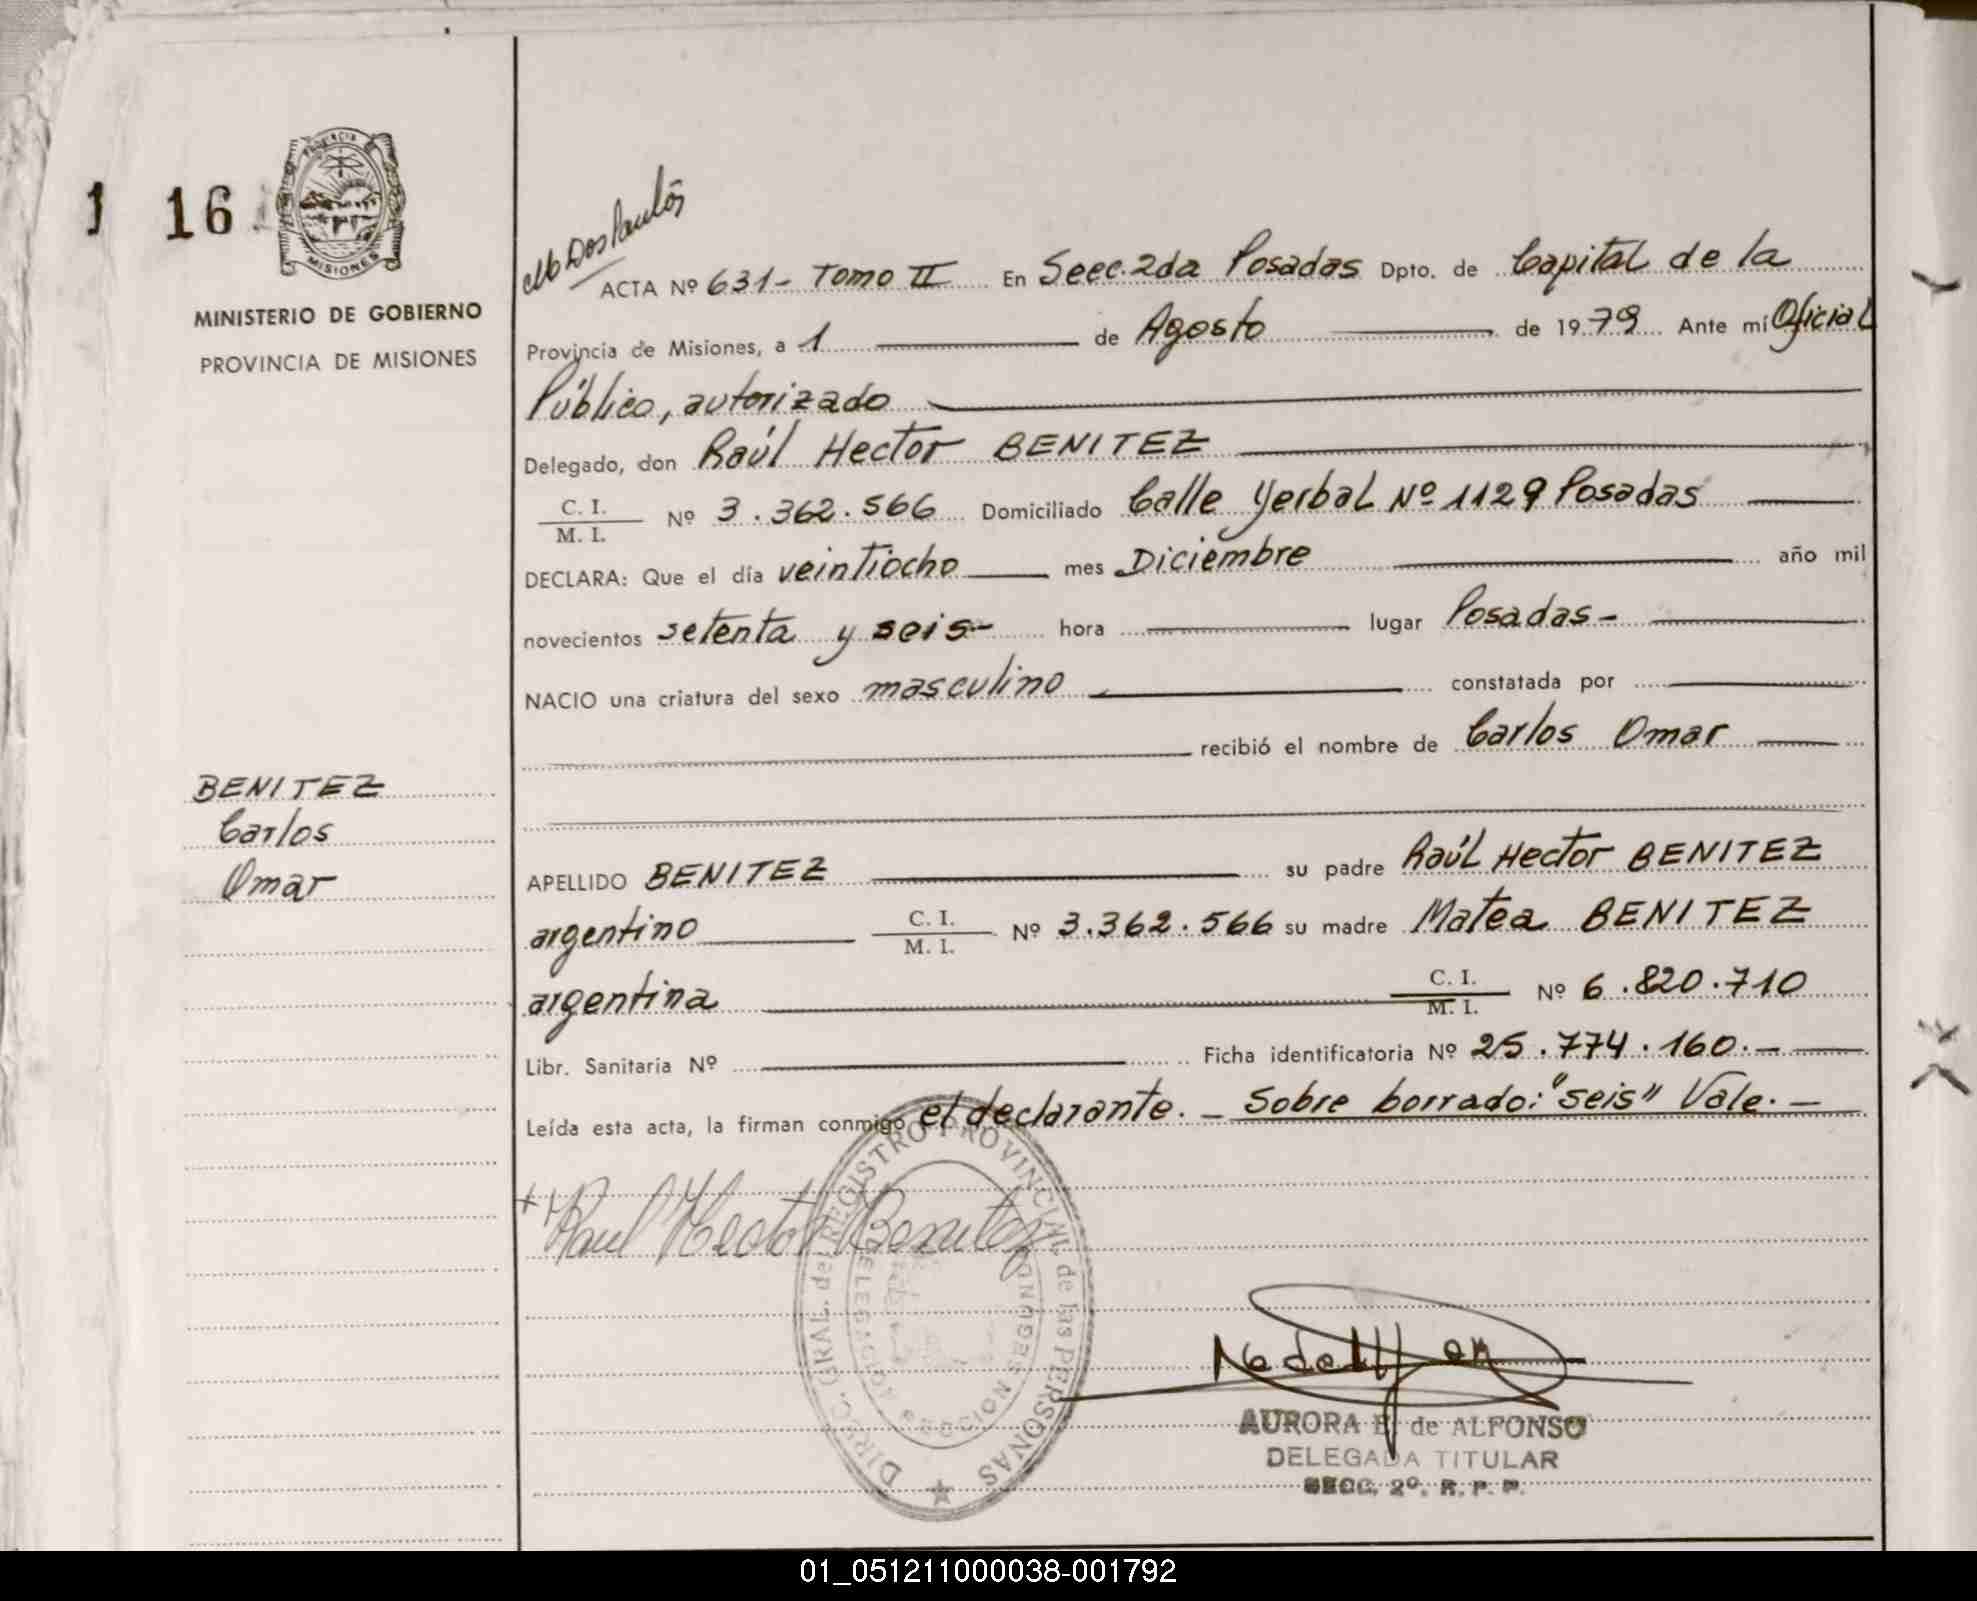 1 16
PROVINCIA
MISIONES
MINISTERIO DE GOBIERNO
PROVINCIA DE MISIONES
BENITEZ
Carlos
Omar
ACTA Nº 631- Tomo II En Secc. 2da Posadas Dpto. de Capital de la
Provincia de Misiones, a 1 de Agosto de 1979 Ante mí Oficial
Público, autorizado
Delegado, don Raúl Hector BENITEZ
C. I.
M. I.
Nº 3.362.566 Domiciliado Calle Yerbal Nº 1129 Posadas
DECLARA: Que el día veintiocho mes Diciembre año mil
novecientos setenta y seis- hora lugar Posadas-
NACIO una criatura del sexo masculino constatada por
recibió el nombre de Carlos Omar
APELLIDO BENITEZ su padre Raúl Hector BENITEZ
argentino C. I. / M. I. Nº 3.362.566 su madre Matea BENITEZ
argentina C. I. / M. I. Nº 6.820.710
Libr. Sanitaria Nº Ficha identificatoria Nº 25.774.160.-
Leída esta acta, la firman conmigo el declarante. - Sobre borrado: "seis" Vale. -
Raul Hector Benitez
DIREC. GRAL. del REGISTRO PROVINCIAL de las PERSONAS
DELEGACION SECCION SEGUNDA
AURORA E. de ALFONSO
DELEGADA TITULAR
SECC. 2º. R. P. P.
01_051211000038-001792